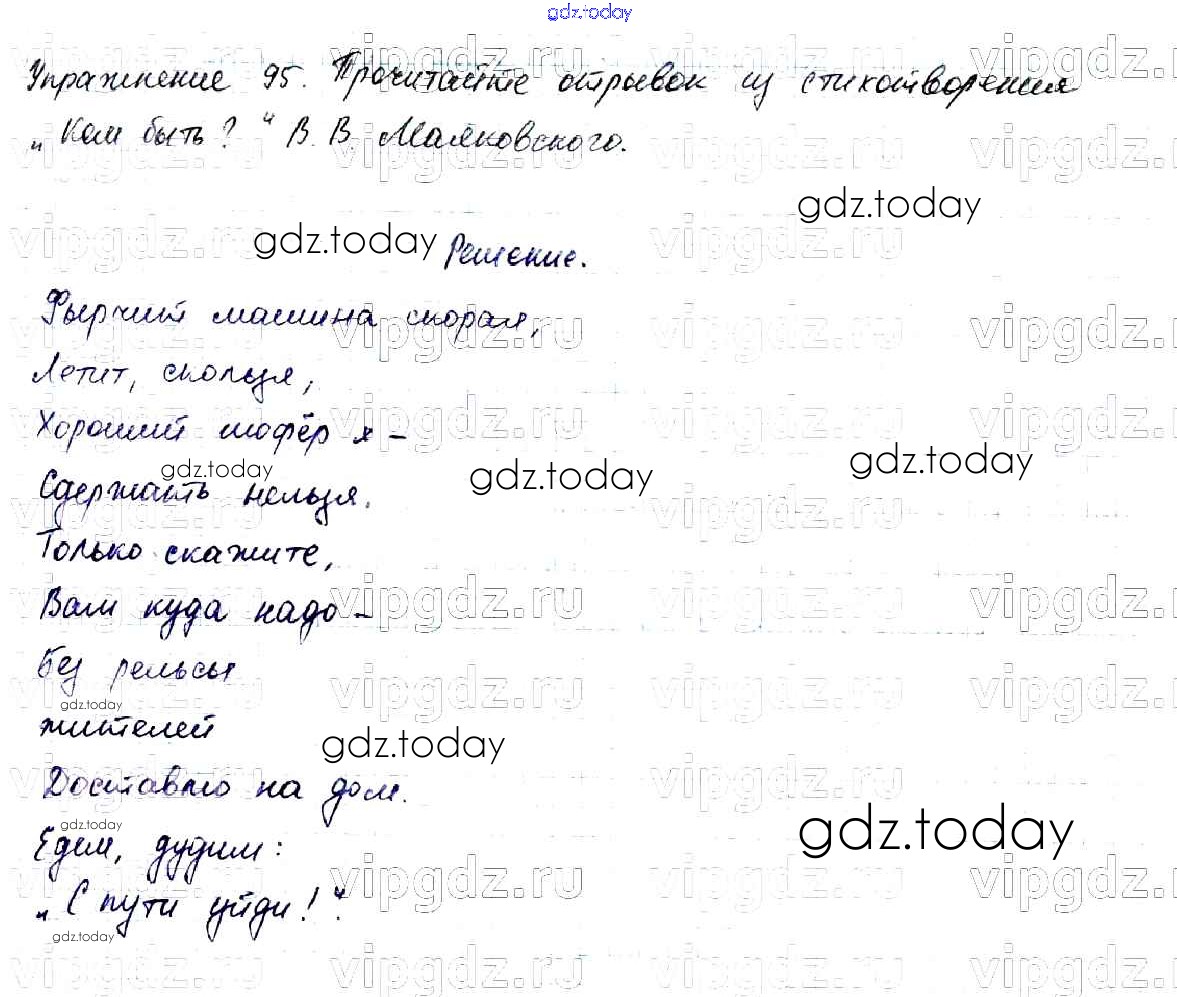 gdz.today
Упражнение 95. Прочитайте отрывок из стихотворения
„Кем быть?“ В. В. Маяковского.
gdz.today
gdz.today Решение.
Фырчит машина скорая,
Летит, скользя,
Хороший шофёр я –
gdz.today gdz.today gdz.today
Сдержать нельзя.
Только скажите,
Вам куда надо –
Без рельсы
gdz.today
жителей
gdz.today
Доставлю на дом.
gdz.today gdz.today
Едем, дудим:
„С пути уйди!“.
gdz.today
vipgdz.ru